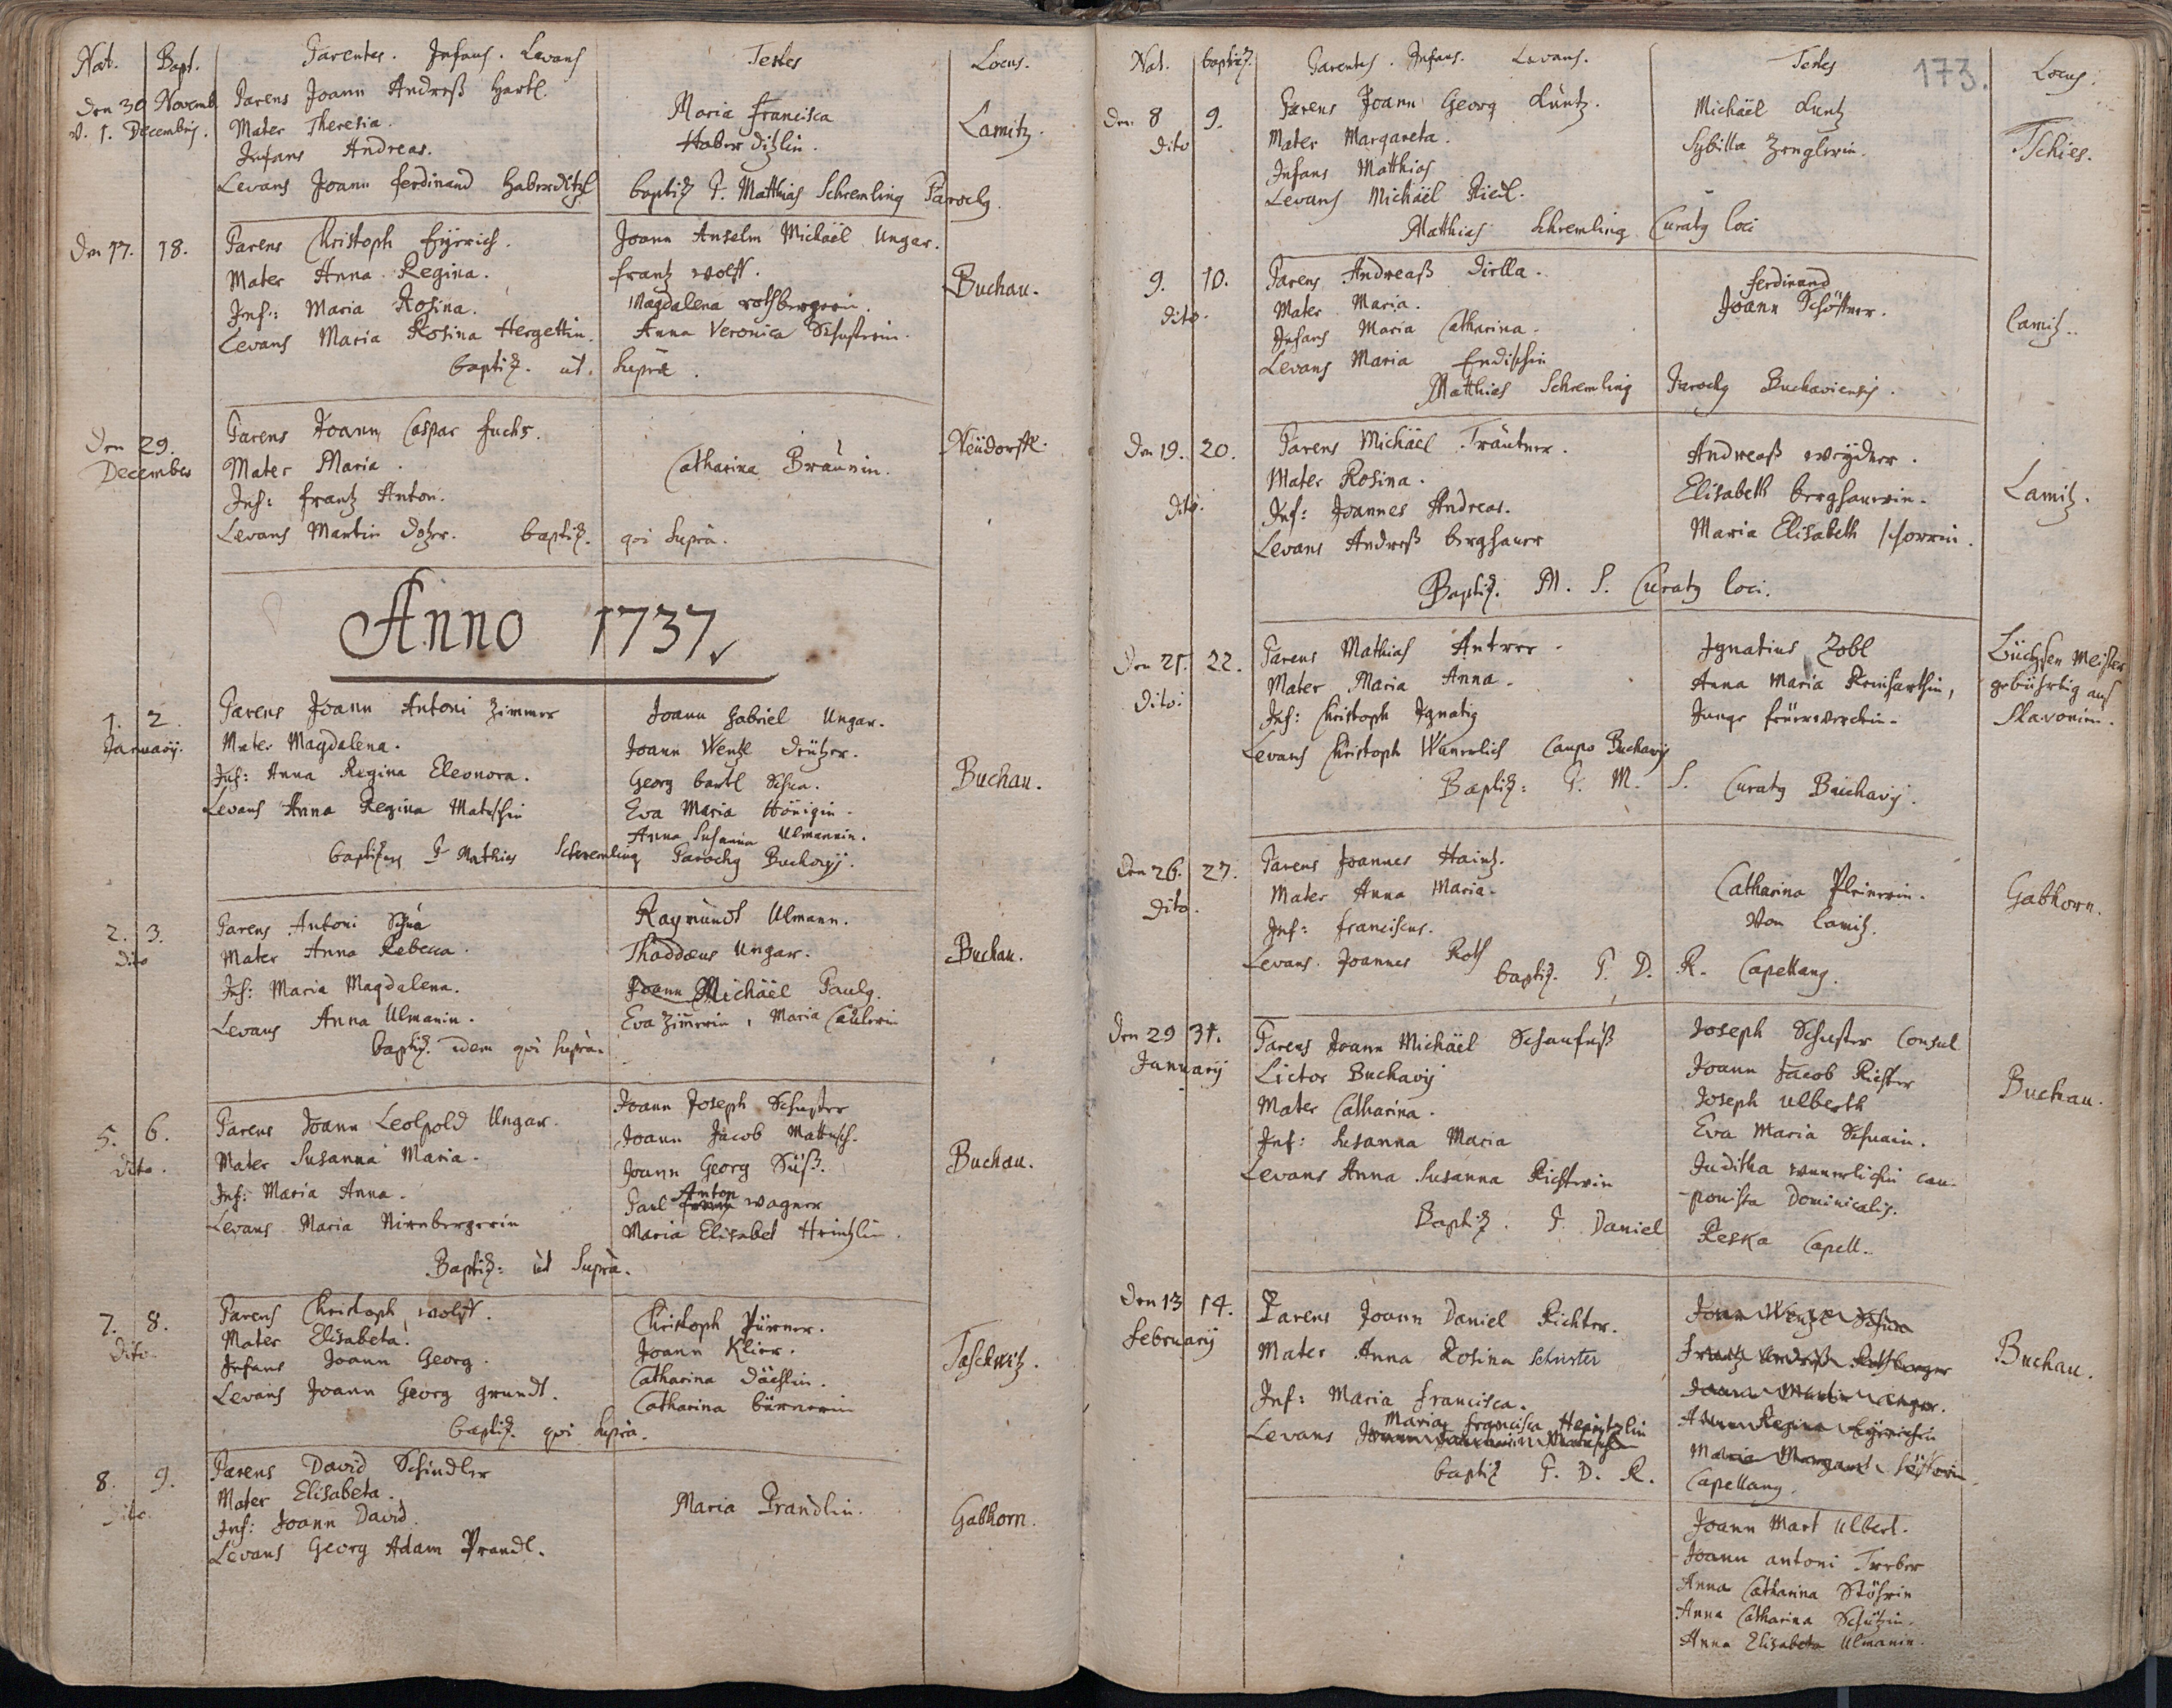 Nat. Bapt. Parentes. Infans. Levans Testes Locus.
Den 30 Novemb. Parens Joann Andreß Hartl. Maria Francisca Lamitz.
d. 1. Decembris. Mater Theresia. Haberditzlin.
Infans Andreas.
Levans Joann Ferdinand Haberditzl baptiz P. Matthias Schremling Paroch9.
Den 17. 18. Parens Christoph Eyrrich. Joann Anselm Michäel Ungar. Buchau.
Mater Anna Regina. Frantz Wolff.
Inf: Maria Rosina. Magdalena Rothbergerin.
Levans Maria Rosina Hergettin. Anna Veronica Schusterin.
baptiz. ut supra.
Den 29. Parens Joann Caspar Fuchs. Neüdorff.
December Mater Maria. Catharina Braünin.
Inf: Frantz Anton.
Levans Martin Dotzer. baptiz. qvi supra.
Anno 1737.
1. 2. Parens Joann Antoni Zimmer Joann Gabriel Ungar. Buchau.
Januarij. Mater Magdalena. Joann Wentzl
Inf: Anna Regina Eleonora. Georg Bartl
Levans Anna Regina Eva Maria Hönigin.
Anna Susanna Ulmannin.
P Mathias Schremling Paroch9 Buchavij.
2. 3. Parens Antoni Raymund Ulmann. Buchau.
dito Mater Anna Rebecca. Thaddæus Ungar.
Inf: Maria Magdalena. Joann Michäel Paul9.
Levans Anna Ulmanin. Eva Zimerin, Maria
baptiz. idem qvi supra.
5. 6. Parens Joann Leolpold Ungar. Joann Joseph Schuster Buchau.
dito. Mater Susanna Maria. Joann Jacob Mattusch.
Inf: Maria Anna. Joann Georg Süß.
Levans Maria Nirnbergerin Paul Anton Wagner
Maria Elisabet Heintzlin.
Baptiz: ut supra.
7. 8. Parens Christoph Wolff. Christoph Pürner. Taschwitz.
dito. Mater Elisabeta. Joann Klier.
Infans Joann Georg. Catharina
Levans Joann Georg Grundt. Catharina Bürnerin
baptiz. qvi supra.
8. 9. Parens David Schindler Gabhorn.
dito. Mater Elisabeta. Maria Prandlin.
Inf: Joann David.
Levans Georg Adam Prandl.
173.
Nat. baptiz. Parentes. Infans. Levans. Testes Locus.
Den 8 9. Parens Joann Georg Luntz. Michäel Luntz Tschies.
dito Mater Margareta. Sybilla Zenglerin.
Infans Matthias
Levans Michäel Riedl.
Matthias Schremling Curat9 loci
9. 10. Parens Andreaß Ferdinand Lamitz.
dito. Mater Maria. Joann
Infans Maria Catharina.
Levans Maria Endischin
Matthias Schremling Paroch9 Buchaviensis.
Den 19. 20. Parens Michäel Träutner. Andreaß Weyder. Lamitz.
dito. Mater Rosina. Elisabeth Berghauerin.
Inf: Joannes Andreas. Maria Elisabeth
Levans Andreß Berghauer
Baptiz. M. S. Curat9 loci.
Den 21. 22. Parens Mathias Ignatius Zobl Büchsen Meister
dito. Mater Maria Anna. Anna Maria Reinharthin, gebührtig aus
Inf: Christoph Ignatig Slavonien.
Levans Christoph Wunerlich Caupo Buchavij
Baptiz: P. M. S. Curat9 Buchavij.
Den 26. 27. Parens Joannes Haintz. Gabhorn.
dito. Mater Anna Maria. Catharina
Inf: Franciscus. von Lamitz.
Levans. Joannes Roth
baptiz. P. D. R. Capellan9.
Den 29 31. Parens Joann Michäel Schaufuß Joseph Schuster Consul
Januarij Lictor Buchavij Joann Jacob Richter Buchau.
Mater Catharina. Joseph Ulberth
Inf: Susanna Maria Eva Maria
Levans Anna Susanna Richterin Juditha Wunerlichin cau-
ponista Dominicalis.
Baptiz. P. Daniel Reska Capell.
Den 13 14. Parens Joann Daniel Richter. Buchau.
Februarij Mater Anna Rosina Schuster
Inf: Maria Francisca.
Levans Maria Francisca Heintzlin
baptiz P. D. R. Capellan9.
Joann Mart Ulbert.
Joann Antoni Treber
Anna Catharina Stöhrin
Anna Catharina Schützin.
Anna Elisabeta Ulmanin.